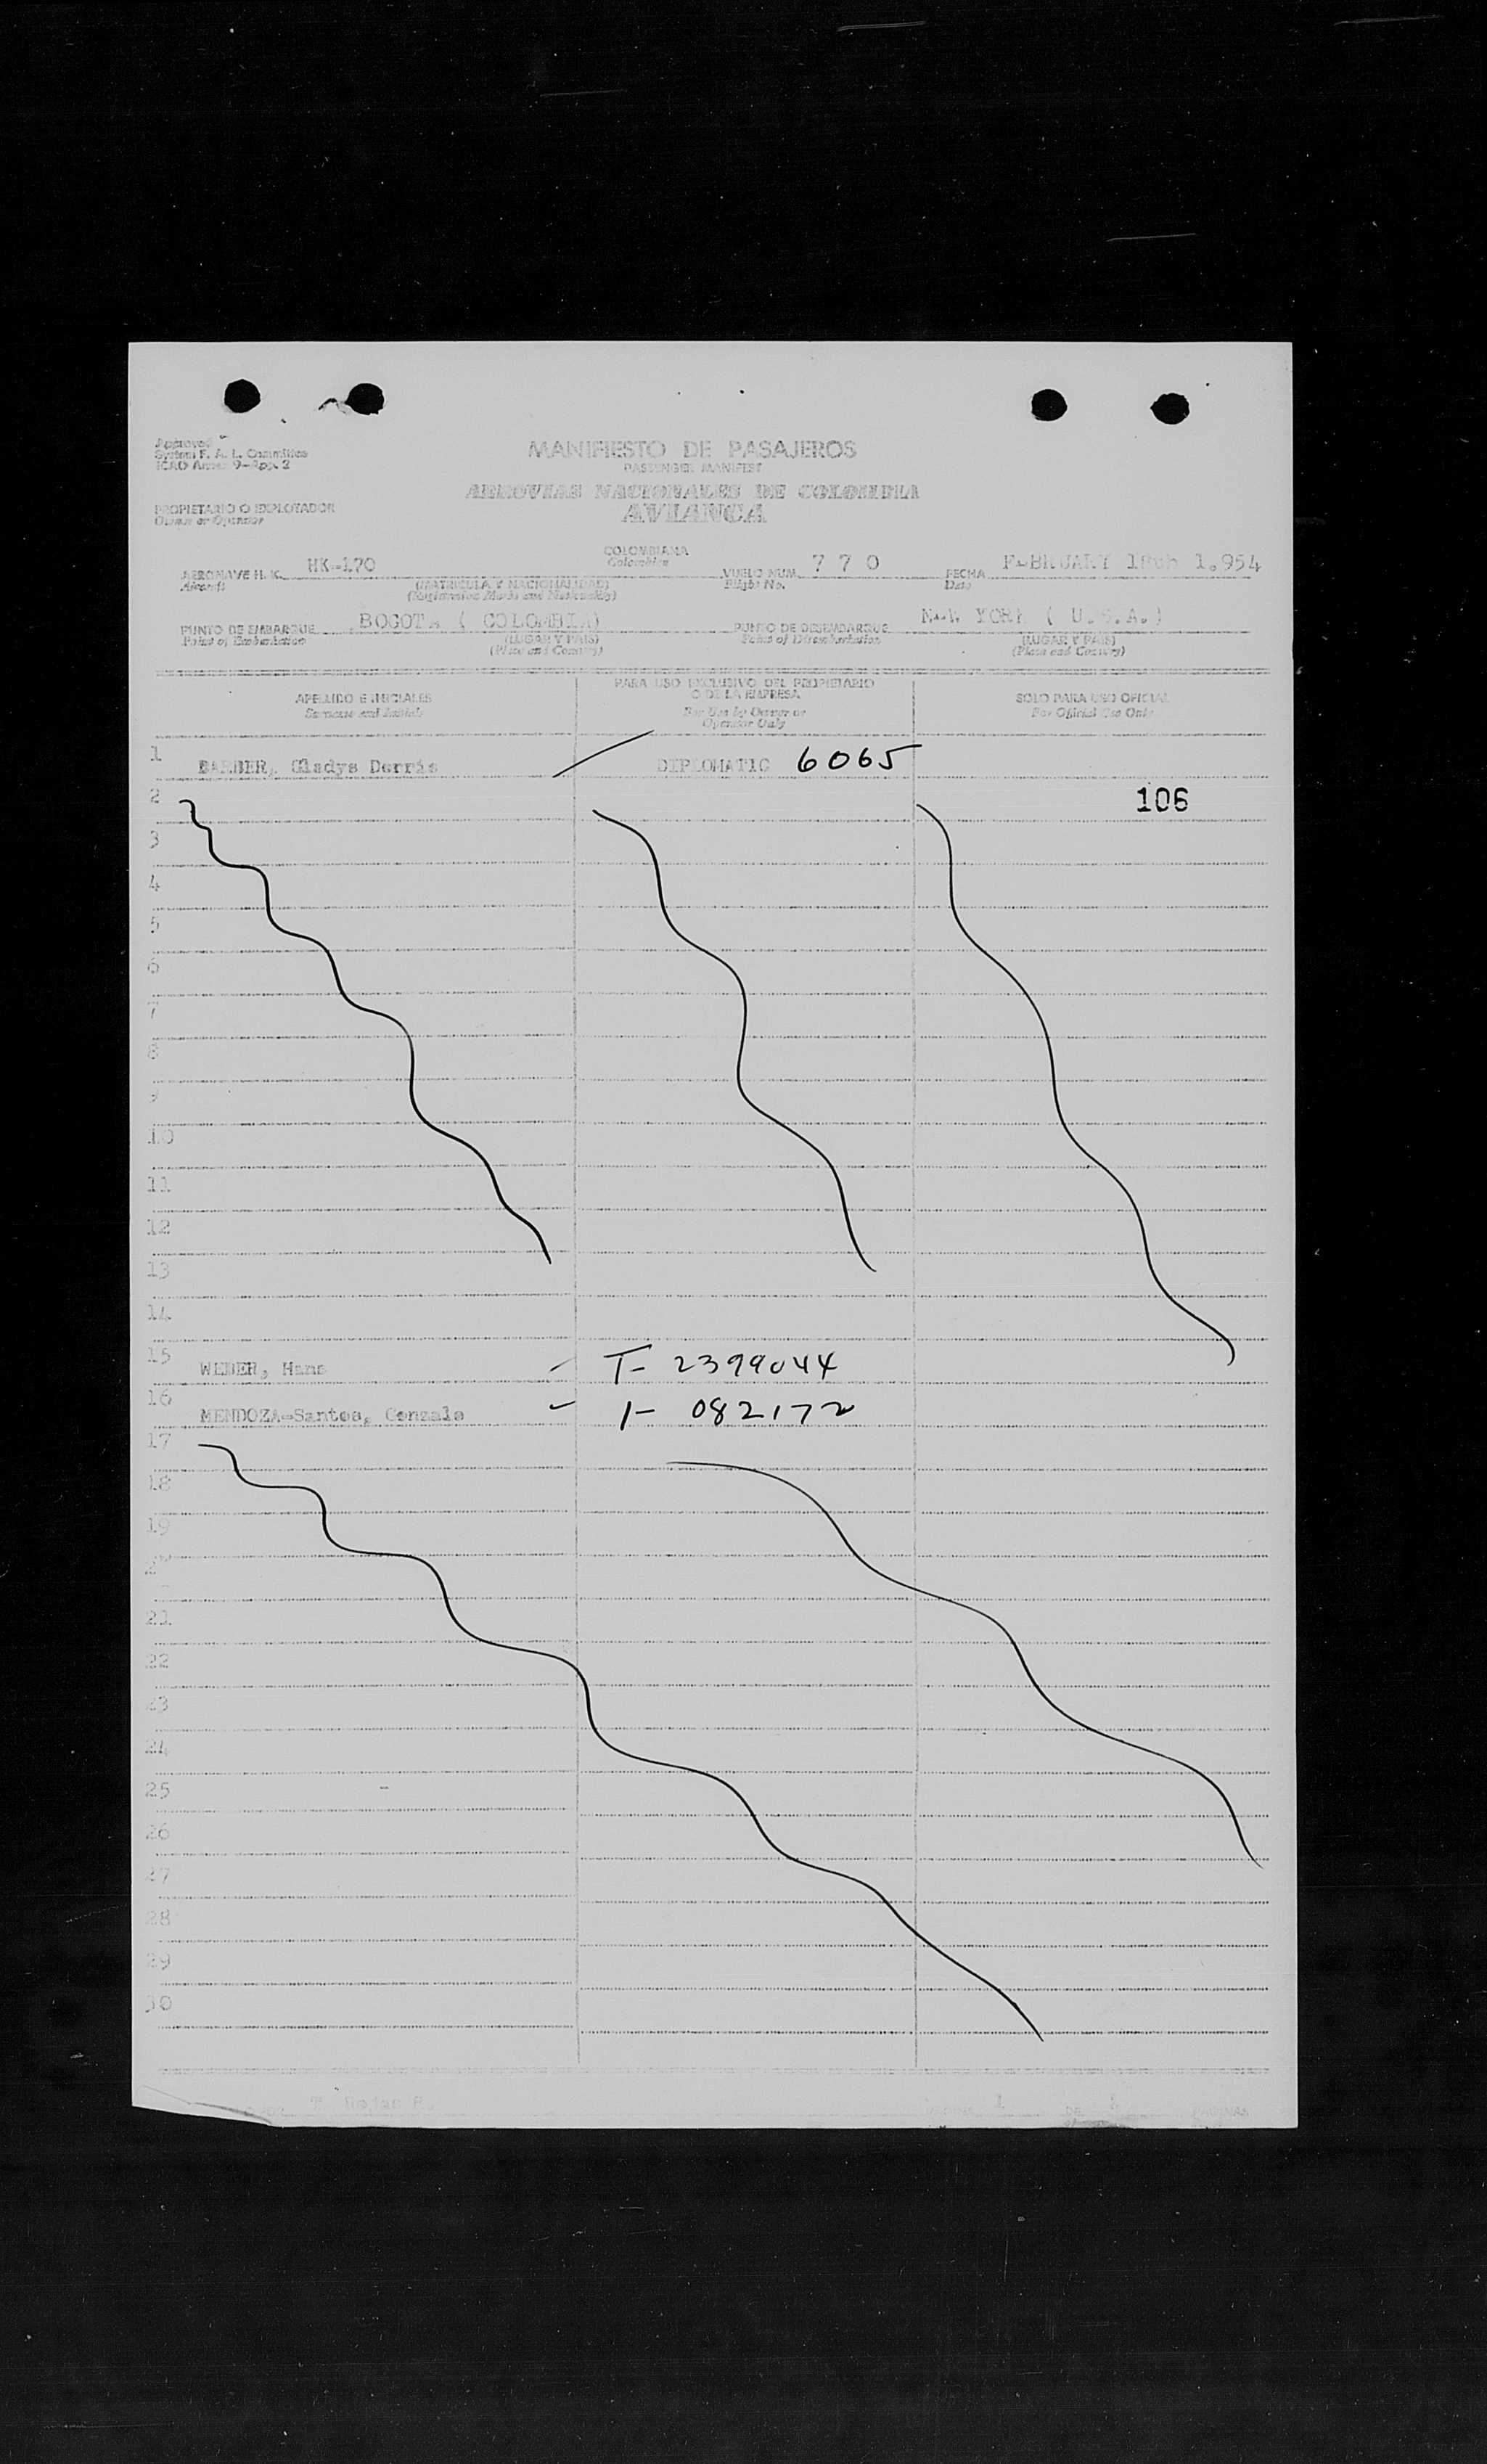 Approved
System F. A. L. Committee
ICAO Annex 9-App. 2
MANIFIESTO DE PASAJEROS
PASSENGER MANIFEST
AEROVIAS NACIONALES DE COLOMBIA
AVIANCA
PROPIETARIO O EXPLOTADOR
Owner or Operator
COLOMBIANA
Colombian
AERONAVE H. K. HK-170 VUELO NUM. 7 7 0 FECHA FEBRUARY 18th 1.954
Aircraft (MATRICULA Y NACIONALIDAD) Flight No. Date
(Registration Marks and Nationality)
PUNTO DE EMBARQUE BOGOTA ( COLOMBIA) PUNTO DE DESEMBARQUE NEW YORK ( U.S.A.)
Point of Embarkation (LUGAR Y PAIS) Point of Disembarkation (LUGAR Y PAIS)
(Place and Country) (Place and Country)
APELLIDO E INICIALES PARA USO EXCLUSIVO DEL PROPIETARIO O DE LA EMPRESA SOLO PARA USO OFICIAL
Surname and Initials For Use by Owner or Operator Only For Official Use Only
1 BARBER, Gladys Derris DIPLOMATIC 6065
2 106
3
4
5
6
7
8
9
10
11
12
13
14
15 WEBER, Hans T- 2399044
16 MENDOZA-Santos, Gonzalo 1- 082172
17
18
19
20
21
22
23
24
25 -
26
27
28
29
30
T Rojas R. 1 DE PAGINAS